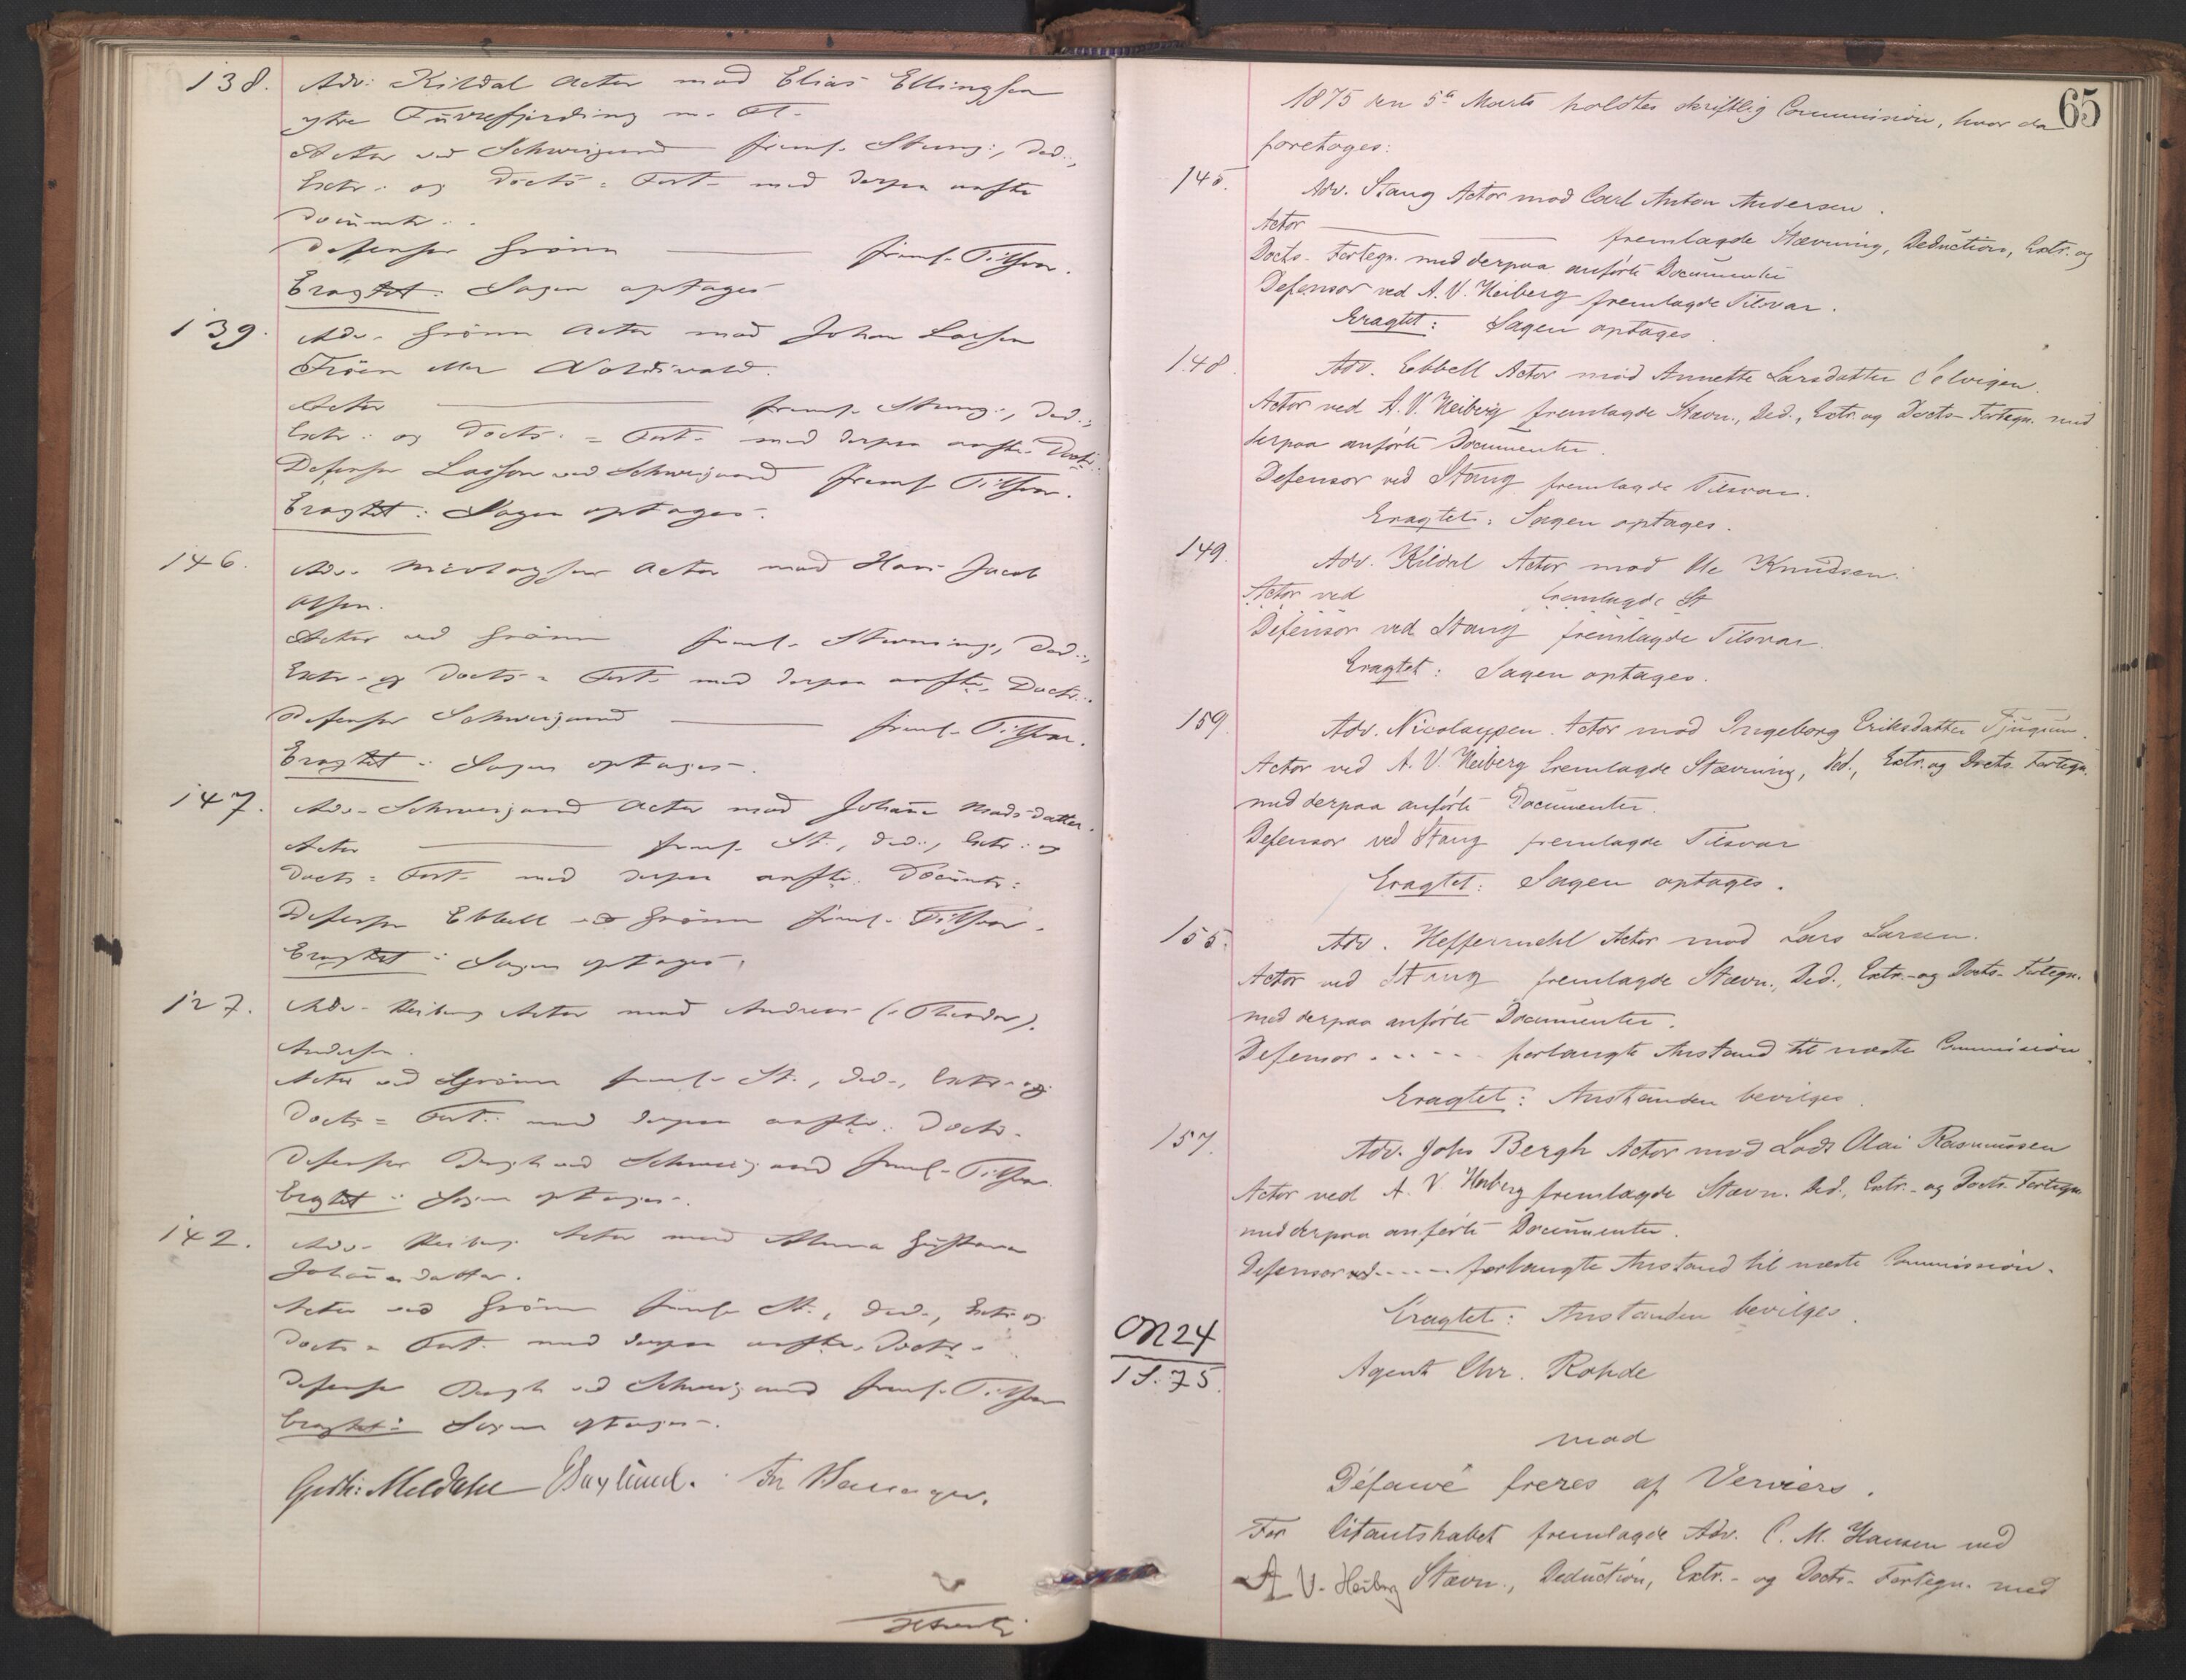 138. Adv: Kildal Actor mod Elias Ellingsen
ytre Fürrefjerding m. Fl.
Actor ved Schweigaard freml. Stevng:, Ded:,
Extr: og Docts = Fort- med derpaa anfte
Documtr.
Defensor Grönn freml. Tilsvar.
Eragtet: Sagen optages
139. Adv. Grönn Actor mod Johan Larsen
Fröen eller
Actor freml. Stevng:, Ded:,
Extr: og Docts: = Fort- med derpaa anfte Docts:
Defensor Lasson ved Schweigaard freml Tilsvar.
Eragtet: Sagen optages.
146. Adv. Nicolaysen Actor mod Hans Jacob
Olsen.
Actor ved Grönn freml. Stevning, Ded:,
Extr. og Docts = Fort- med derpaa anfte. Doctr.
Defensor Schweigaard freml. Tilsvar.
Eragtet: Sagen optages.
147. Adv. Schweigaard Actor mod Johanne Madsdatter.
Actor freml. St:, Ded:, Extr: og
Docts = Fort- med derpaa anfte. Documtr:
Defensor Ebbell ved Grönn freml. Tilsvar.
Eragtet: Sagen optages.
127. Adv. Heiberg Actor mod Andreas (Theodor)
Andersen.
Actor ved Grönn freml. St:, Ded., Extr. og
Docts = Fort. med derpaa anfte. Docts.
Defensor Bergh ved Schweigaard freml. Tilsvar.
Eragtet: Sagen optages.
142. Adv. Heiberg Actor mod Gustava
Johannesdatter.
Actor ved Grönn freml. St:, Ded., Extr og
Docts = Fort. med derpaa anfte. Docts.
Defensor Bergh ved Schweigaard freml. Tilsvar
Eragtet: Sagen optages.
Meldahl
65
1875 den 5te Marts holdtes skriftlig Commission, hvor da
foretoges:
145. Adv. Stang Actor mod Carl Anton Andersen.
Actor fremlagde Stævning, Deduction, Extr. og
Docts- Fortegn. med derpaa anförte Documenter
Defensor ved A. V. Heiberg fremlagde Tilsvar.
Eragtet: Sagen optages.
148. Adv. Ebbell Actor mod Annette Larsdatter Selvigen.
Actor ved A. V. Heiberg fremlagde Stævn., Ded., Extr. og Docts- Fortegn. med
derpaa anförte Documenter.
Defensor ved Stang fremlagde Tilsvar.
Eragtet: Sagen optages.
149. Adv. Kildal Actor mod Ole Knudsen.
Actor ved fremlagde St
Defensor ved Stang fremlagde Tilsvar.
Eragtet: Sagen optages.
159. Adv. Nicolaysen Actor mod Ingeborg Eriksdatter Tjugum.
Actor ved A. V. Heiberg fremlagde Stævning, Ded., Extr. og Docts. Fortegn.
med derpaa anförte Documenter.
Defensor ved Stang fremlagde Tilsvar
Eragtet: Sagen optages.
155. Adv. Heffermehl Actor mod Lars Larsen.
Actor ved Stang fremlagde Stævn., Ded., Extr.- og Docts- Fortegn.
med derpaa anförte Documenter.
Defensor ..... forlangte Anstand til næste Commission.
Eragtet: Anstanden bevilges.
157. Adv. Johs Bergh Actor mod Lods Olai Rasmussen
Actor ved A. V. Heiberg fremlagde Stævn. Ded., Extr.- og Docts- Fortegn
med derpaa anförte Documenter.
Defensor ved ..... forlangte Anstand til næste Commission.
Eragtet: Anstanden bevilges.
ON24
1 S. 75.
Agent Chr. Rohde
mod
Défawé freres af Verviers.
For Citantskabet fremlagde Adv. C. M. Hansen ved
A V. Heiberg Stævn., Deduction, Extr.- og Docts- Fortegn. med